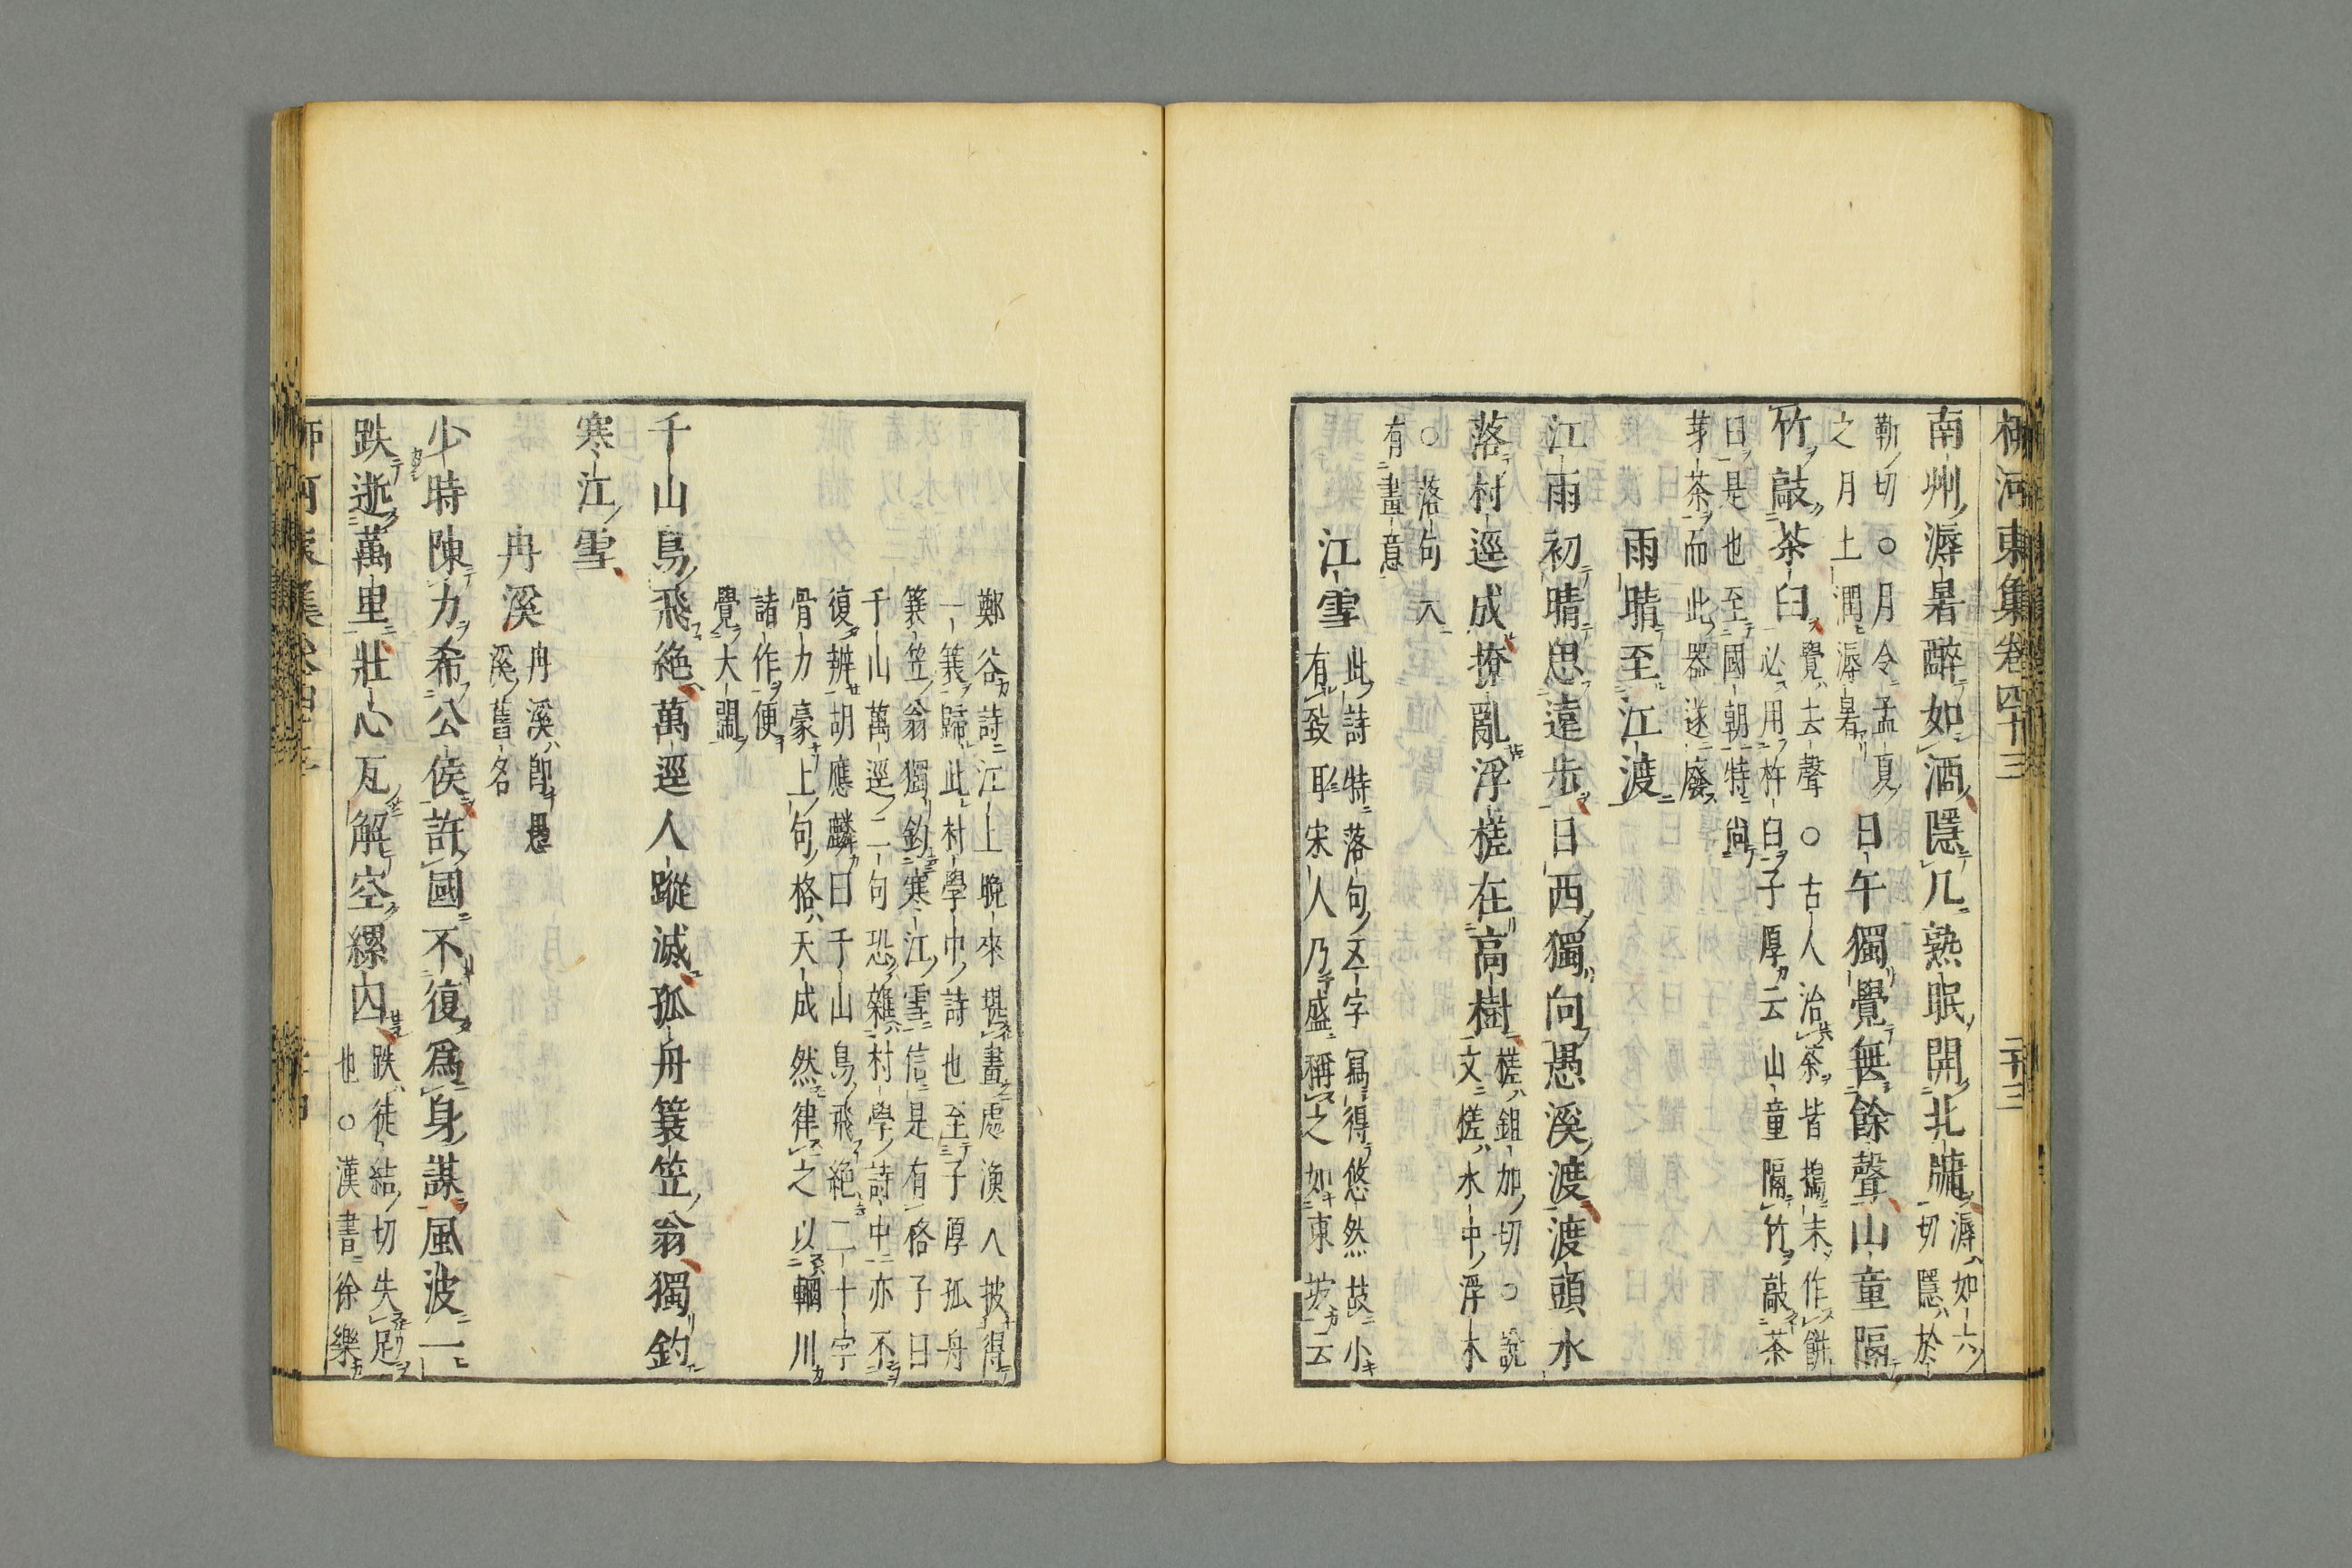 柳河東集卷四十三　二十三
南州溽暑醉如酒隱几熟眠開北牖
溽如六
切隱於
靳切○月令孟夏
之月土潤溽暑
日午獨覺無餘聲山童隔
竹敲茶臼
覺去聲○古人治茶皆搗末作餅
必用杵臼子厚云山童隔竹敲茶
臼是也至國朝特尚
芽茶而此器遂廢
雨晴至江渡
江雨初晴思遠步日西獨向愚溪渡渡頭水
落村逕成撩亂浮槎在高樹
槎鉏加切○說
文槎水中浮木
○落句入
有畫意
江雪
此詩特落句五字寫得悠然故小
有致耳宋人乃盛稱之如東坡云
鄭谷詩江上晚來堪畫處漁人披得
一簑歸此村學中詩也至子厚孤舟
簑笠翁獨釣寒江雪信是有格子曰
千山萬逕二句恐雜村學詩中亦不
復辨胡應麟曰千山鳥飛絶二十字
骨力豪上句格天成然律之以輞川
諸作便
覺大鬧
千山鳥飛絶萬逕人蹤滅孤舟簑笠翁獨釣
寒江雪
冉溪
冉溪即愚
溪舊名
少時陳力希公侯許國不復爲身謀風波一
跌逝萬里壯心瓦解空縲囚
跌徒結切失足
也○漢書徐樂